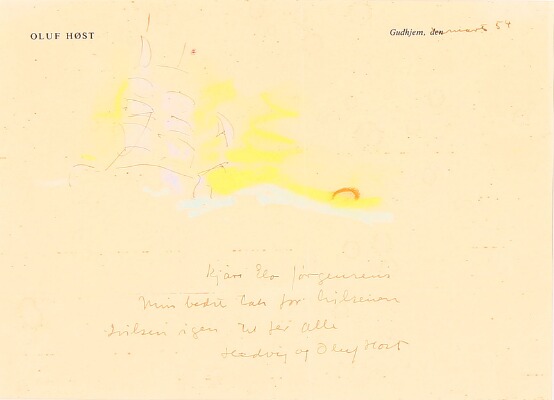 OLUF HØST
Gudhjem, den marts 54
Kjære Elo Jørgensens
Min bedste tak for hilsenen
hilsen igen til jer alle
Hedvig og Oluf Høst